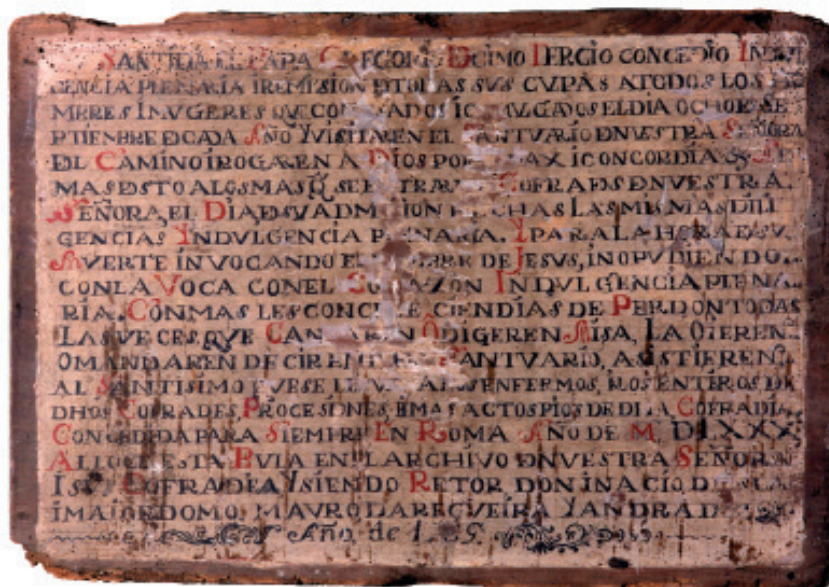 SANTIDA EL PAPA GREGORIO DCIMO TERCIO CONCEDIO INDVL
GENCIA PLENARIA IREMISION DTODAS SVS CVPAS ATODOS LOS
MBRES IMVGERES QVE CONFESADOS ICOMVLGADOS EL DIA OCHO DE SE
PTIEMBRE DCADA AÑO YVISITAREN EL SANTVARIO DNVESTRA SEÑORA
DL CAMINO IROGAREN A DIOS POR LA PAX ICONCORDIA
MAS DSTO ALOSMAS Q SE ENTRAREN COFRADS DNVESTRA
SEÑORA, EL DIA DSV ADMISION HECHAS LAS MISMAS DILI
GENCIAS YNDVLGENCIA PLENARIA. YPARA LA HORA DSV
MVERTE INVOCANDO EL NOMBRE DE JESVS, INOPVDIENDO
CONLA VOCA CONEL CORAZON INDVLGENCIA PLENA
RIA. CONMAS LES CONCEDE CIENDIAS DE PERDON TODAS
LAS VECES QVE CANTAREN ODIGEREN MISA, LA OIEREN
OMANDAREN DECIR EN DHO SANTVARIO, ASISTIEREN
AL SANTISIMO FVESE LLEVAR ALSENFERMOS, ILOS ENTIROS DE
DHOS COFRADES, PROCESIONES, IMAS ACTOS PIOS DE DI LA COFRADIA
CONCEDIDA PARA SIEMPRE EN ROMA AÑO DE M. DLXXX
BVLA EN EL ARCHIVO DNVESTRA SEÑORA
COFRADEA YSIENDO RETOR DON INACIO
IMAIORDOMO MAVRO LAREGVEIRA YANDRAD
Año de